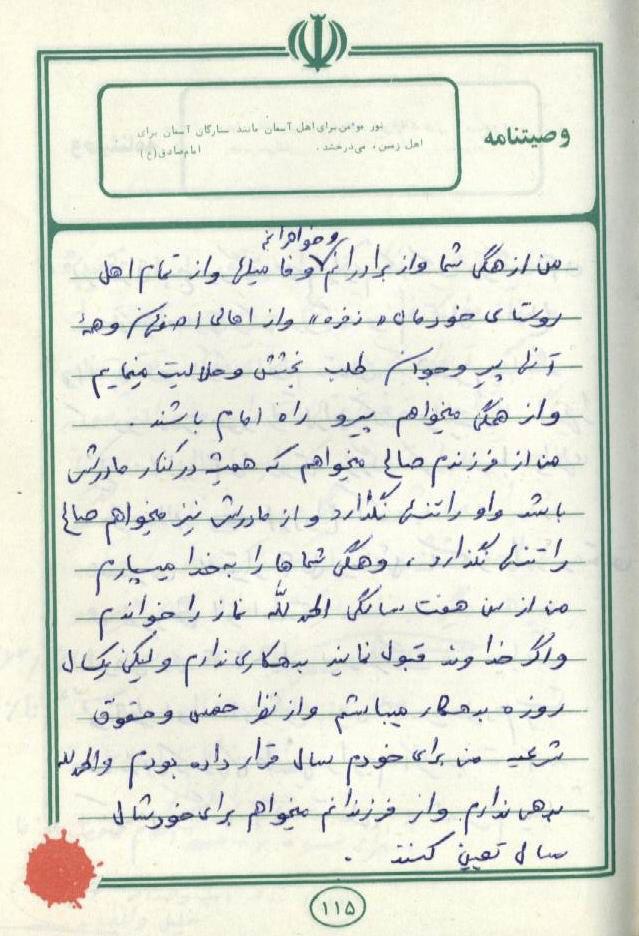 وصیتنامه
نور مؤمن برای اهل آسمان مانند ستارگان آسمان برای
اهل زمین، می‌درخشد. امام صادق (ع)
و خواهرانم
من از همگی شما و از برادرانم و فامیلها و از تمام اهل
روستای خودمان «زفره» و از اهالی اصفهان و همهٔ
آنها پیر و جوان طلب بخشش و حلالیت مینمایم
و از همگی میخواهم پیرو راه امام باشند.
من از فرزندم صالح میخواهم که همیشه در کنار مادرش
باشد و او را تنها نگذارد و از مادرش نیز میخواهم صالح
را تنها نگذارد، و همگی شماها را به خدا میسپارم
من از سن هفت سالگی الحمدلله نماز را خواندم
و اگر خداوند قبول نمایند بدهکاری ندارم ولیکن یکسال
روزه بدهکار میباشم و از نظر خمس و حقوق
شرعیه من برای خودم سال قرار داده بودم و الحمدلله
بدهی ندارم و از فرزندانم میخواهم برای خودشان
سال تعیین کنند.
۱۱۵